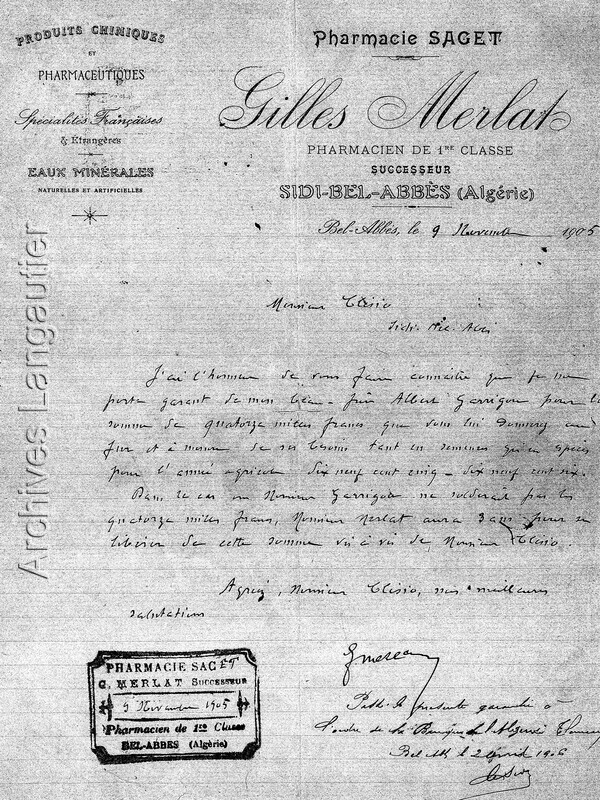 PRODUITS CHIMIQUES
ET
PHARMACEUTIQUES
Spécialités Françaises
& Etrangères
EAUX MINÉRALES
NATURELLES ET ARTIFICIELLES
Pharmacie SAGET
Gilles Merlat
PHARMACIEN DE 1RE CLASSE
SUCCESSEUR
SIDI-BEL-ABBÈS (Algérie)
Bel-Abbès, le 9 Novembre 1905
Monsieur Clésio
Sidi Bel Abbès
J'ai l'honneur de vous faire connaitre que je me
porte garant de mon beau-frère Albert Garrigou pour la
somme de quatorze milles francs que vous lui donnerez au
fur et à mesure de ses besoins tant en semences qu'en espèces
pour l'année agricole dix neuf cent cinq - dix neuf cent six.
Dans le cas ou Monsieur Garrigou ne solderait pas les
quatorze milles francs, Monsieur Merlat aura 3 ans pour se
libérer de cette somme vis à vis de Monsieur Clésio.
Agréez, Monsieur Clésio, nos meilleures
salutations
PHARMACIE SAGET
G. MERLAT SUCCESSEUR
9 Novembre 1905
Pharmacien de 1re Classe
BEL-ABBES (Algérie)
présente garantie à
l'ordre de la Banque de l'Algérie
Bel Abbès le 2 avril 1906
Archives Langautier